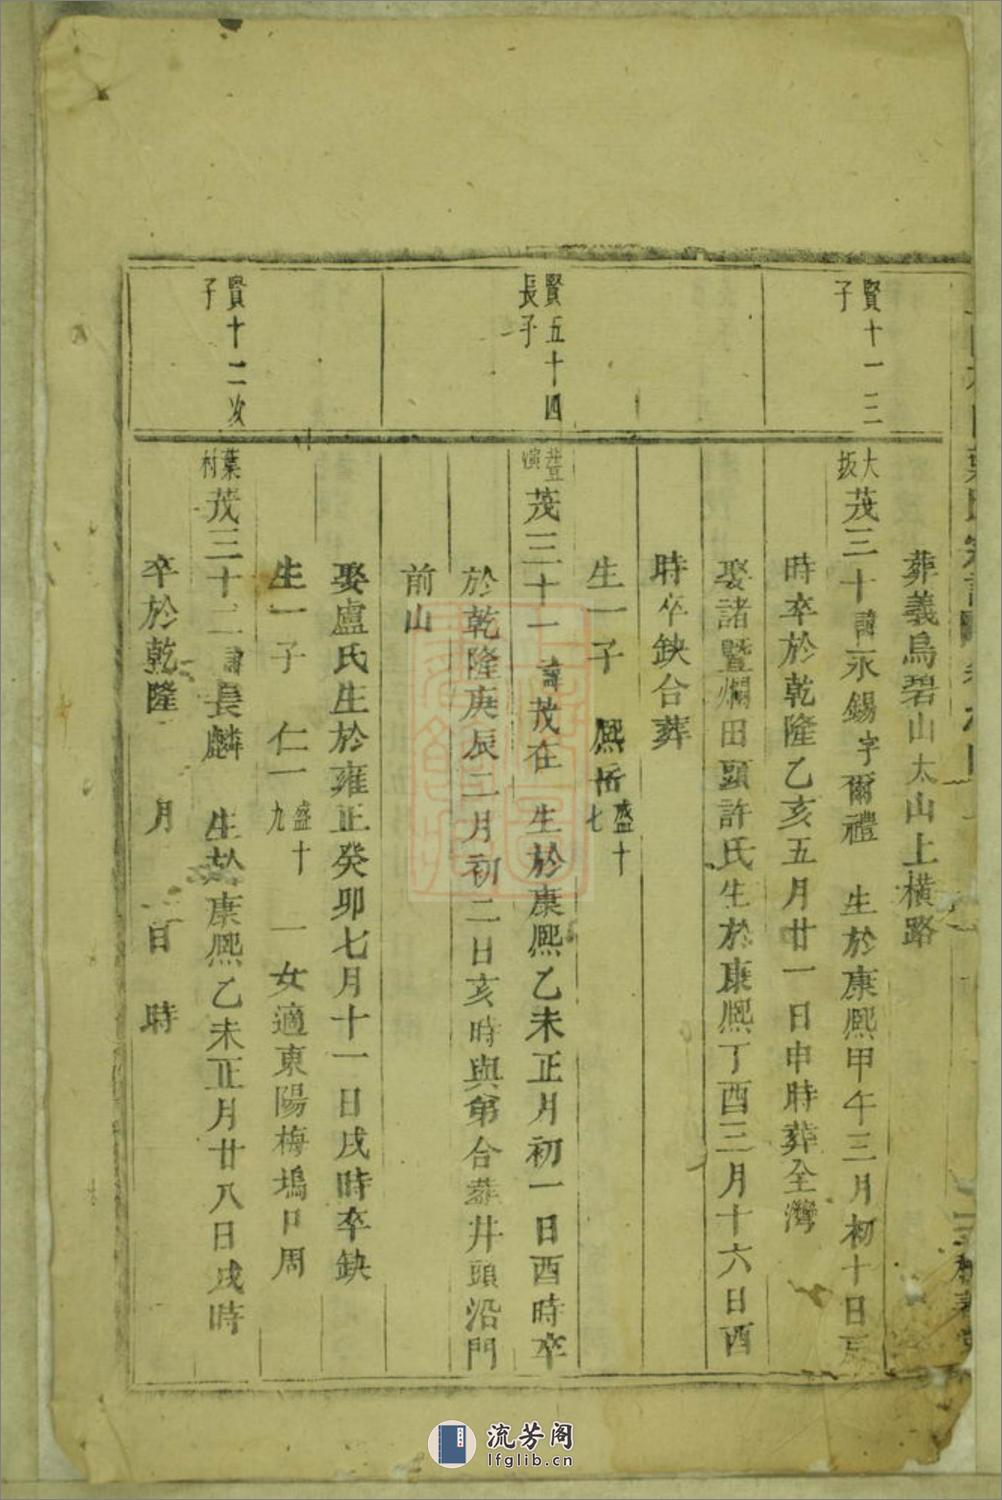 葬義烏碧山太山上橫路
賢十一三
子
大
坂
茂三十諱永錫字爾禮　生於康熙甲午三月初十日
時卒於乾隆乙亥五月廿一日申時葬全灣
娶諸暨爛田頭許氏生於康熙丁酉三月十六日酉
時卒缺合葬
生一子　熙岳盛十
七
賢五十四
長子
茂三十一諱茂在　生於康熙乙未正月初一日酉時卒
於乾隆庚辰二月初二日亥時與弟合葬井頭沿門
前山
娶盧氏生於雍正癸卯七月十一日戌時卒缺
生一子　仁一盛十
九
一女適東陽梅塢口周
賢十二次
子
葉
村
茂三十二諱長麟　生於康熙乙未正月廿八日戌時
卒於乾隆　月　日　時
流芳阁
lfglib.cn